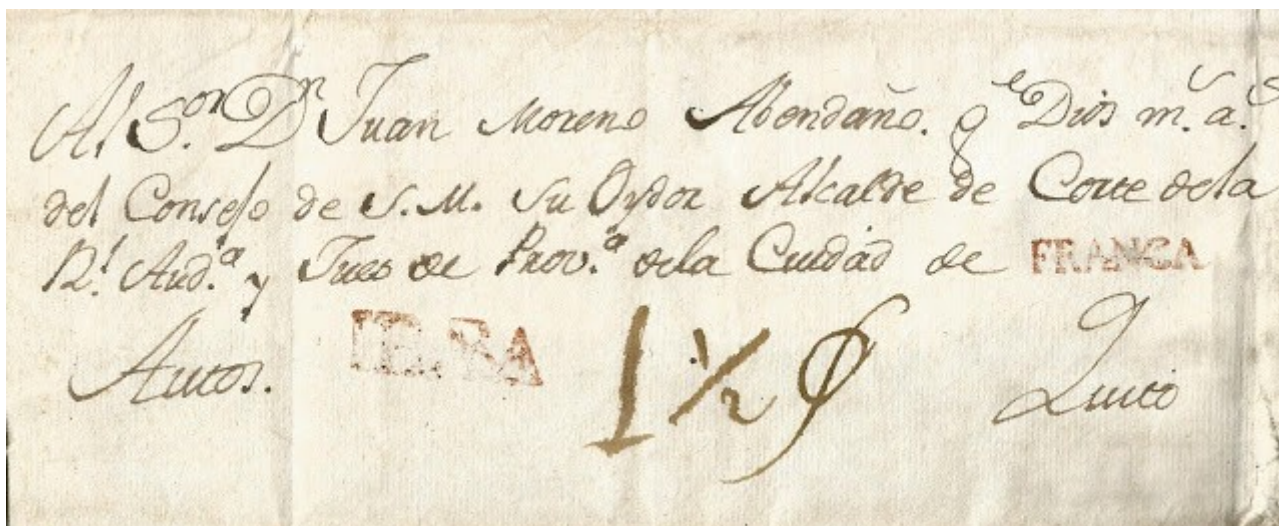 Al S.or D.n Juan Moreno Abendaño. q.e Dios m.s a.s
del Consejo de S. M. Su Oydor Alcalde de Corte dela
R.l Aud.a y Juez de Prov.a dela Cuidad de FRANCA
Autos. 1 1/2 Quito